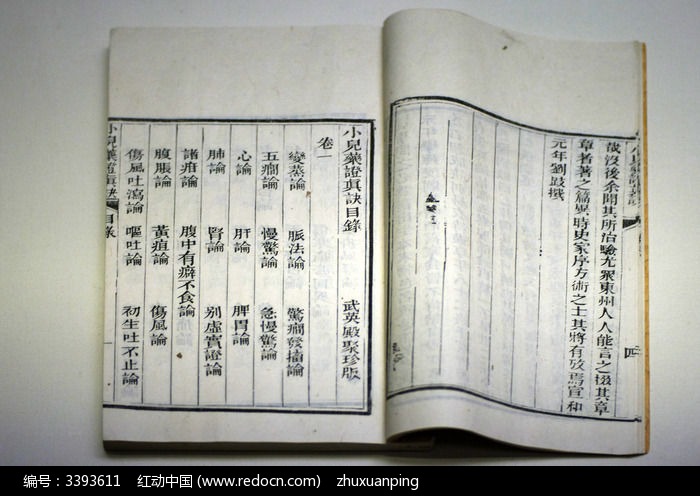 哉沒後余聞其所治驗尤眾東州人人能言之掇其章
章者著之篇異時史家序方術之士其將有攷焉宣和
元年劉跂撰
四
小兒藥證眞訣目錄 武英殿聚珍版
卷一
變蒸論 脈法論 驚癇發搐論
五癇論 慢驚論 急慢驚論
心論 肝論 脾胃論
肺論 腎論 别虛實證論
諸疳論 腹中有癖不食論
腹脹論 黃疸論 傷風論
傷風吐瀉論 嘔吐論 初生吐不止論
小兒藥證眞訣 目錄
编号：3393611 红动中国 (www.redocn.com) zhuxuanping